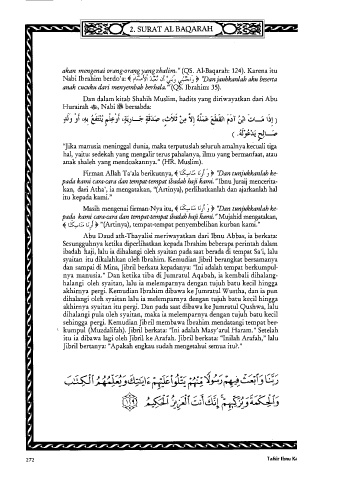 2. SURAT AL BAQARAH
akan mengenai orang-orang yang zhalim." (QS. Al-Baqarah: 124). Karena itu
Nabi Ibrahim berdo'a: ﴾ وَاجْنُبْنِي وَبَنِيَّ أَن نَّعْبُدَ الْأَصْنَامَ ﴿ "Dan jauhkanlah aku beserta
anak cucuku dari menyembah berhala." (QS. Ibrahim: 35).
Dan dalam kitab Shahih Muslim, hadits yang diriwayatkan dari Abu
Hurairah ﷺ, Nabi ﷺ bersabda:
( إِذَا مَــاتَ ابْنُ آدَمَ انْقَطَعَ عَمَلُهُ إِلاَّ مِنْ ثَلاَثٍ، صَدَقَةٍ جَــارِيَةٍ، أَوْ عِلْمٍ يُنْتَفَعُ بِهِ، أَوْ وَلَدٍ
صَــالِحٍ يَدْعُوْلَهُ. )
"Jika manusia meninggal dunia, maka terputuslah seluruh amalnya kecuali tiga
hal, yaitu: sedekah yang mengalir terus pahalanya, ilmu yang bermanfaat, atau
anak shaleh yang mendoakannya." (HR. Muslim).
Firman Allah Ta'ala berikutnya, ﴾ وَأَرِنَا مَنَاسِكَنَا ﴿ "Dan tunjukkanlah ke-
pada kami cara-cara dan tempat-tempat ibadah haji kami." Ibnu Juraij mencerita-
kan, dari Atha', ia mengatakan, "(Artinya), perlihatkanlah dan ajarkanlah hal
itu kepada kami."
Masih mengenai firman-Nya itu, ﴾ وَأَرِنَا مَنَاسِكَنَا ﴿ "Dan tunjukkanlah ke-
pada kami cara-cara dan tempat-tempat ibadah haji kami." Mujahid mengatakan,
﴾ وَأَرِنَا مَنَاسِكَنَا ﴿ "(Artinya), tempat-tempat penyembelihan kurban kami."
Abu Daud ath-Thayalisi meriwayatkan dari Ibnu Abbas, ia berkata:
Sesungguhnya ketika diperlihatkan kepada Ibrahim beberapa perintah dalam
ibadah haji, lalu ia dihalangi oleh syaitan pada saat berada di tempat Sa'i, lalu
syaitan itu dikalahkan oleh Ibrahim. Kemudian Jibril berangkat bersamanya
dan sampai di Mina, Jibril berkata kepadanya: "Ini adalah tempat berkumpul-
nya manusia." Dan ketika tiba di Jumratul Aqabah, ia kembali dihalang-
halangi oleh syaitan, lalu ia melemparnya dengan tujuh batu kecil hingga
akhirnya pergi. Kemudian Ibrahim dibawa ke Jumratul Wustha, dan ia pun
dihalangi oleh syaitan lalu ia melemparnya dengan tujuh batu kecil hingga
akhirnya syaitan itu pergi. Dan pada saat dibawa ke Jumratul Qushwa, lalu
dihalangi pula oleh syaitan, maka ia melemparnya dengan tujuh batu kecil
sehingga pergi. Kemudian Jibril membawa Ibrahim mendatangi tempat ber-
kumpul (Muzdalifah). Jibril berkata: "Ini adalah Masy'aril Haram." Setelah
itu ia dibawa lagi oleh Jibril ke Arafah. Jibril berkata: "Inilah Arafah," lalu
Jibril bertanya: "Apakah engkau sudah mengetahui semua itu?."
رَبَّنَا وَابْعَثْ فِيهِمْ رَسُولًا مِّنْهُمْ يَتْلُوا عَلَيْهِمْ ءَايَٰتِكَ وَيُعَلِّمُهُمُ الْكِتَٰبَ
وَالْحِكْمَةَ وَيُزَكِّيهِمْ إِنَّكَ أَنتَ الْعَزِيزُ الْحَكِيمُ ﴿١٢٩﴾
272
Tafsir Ibnu Ka